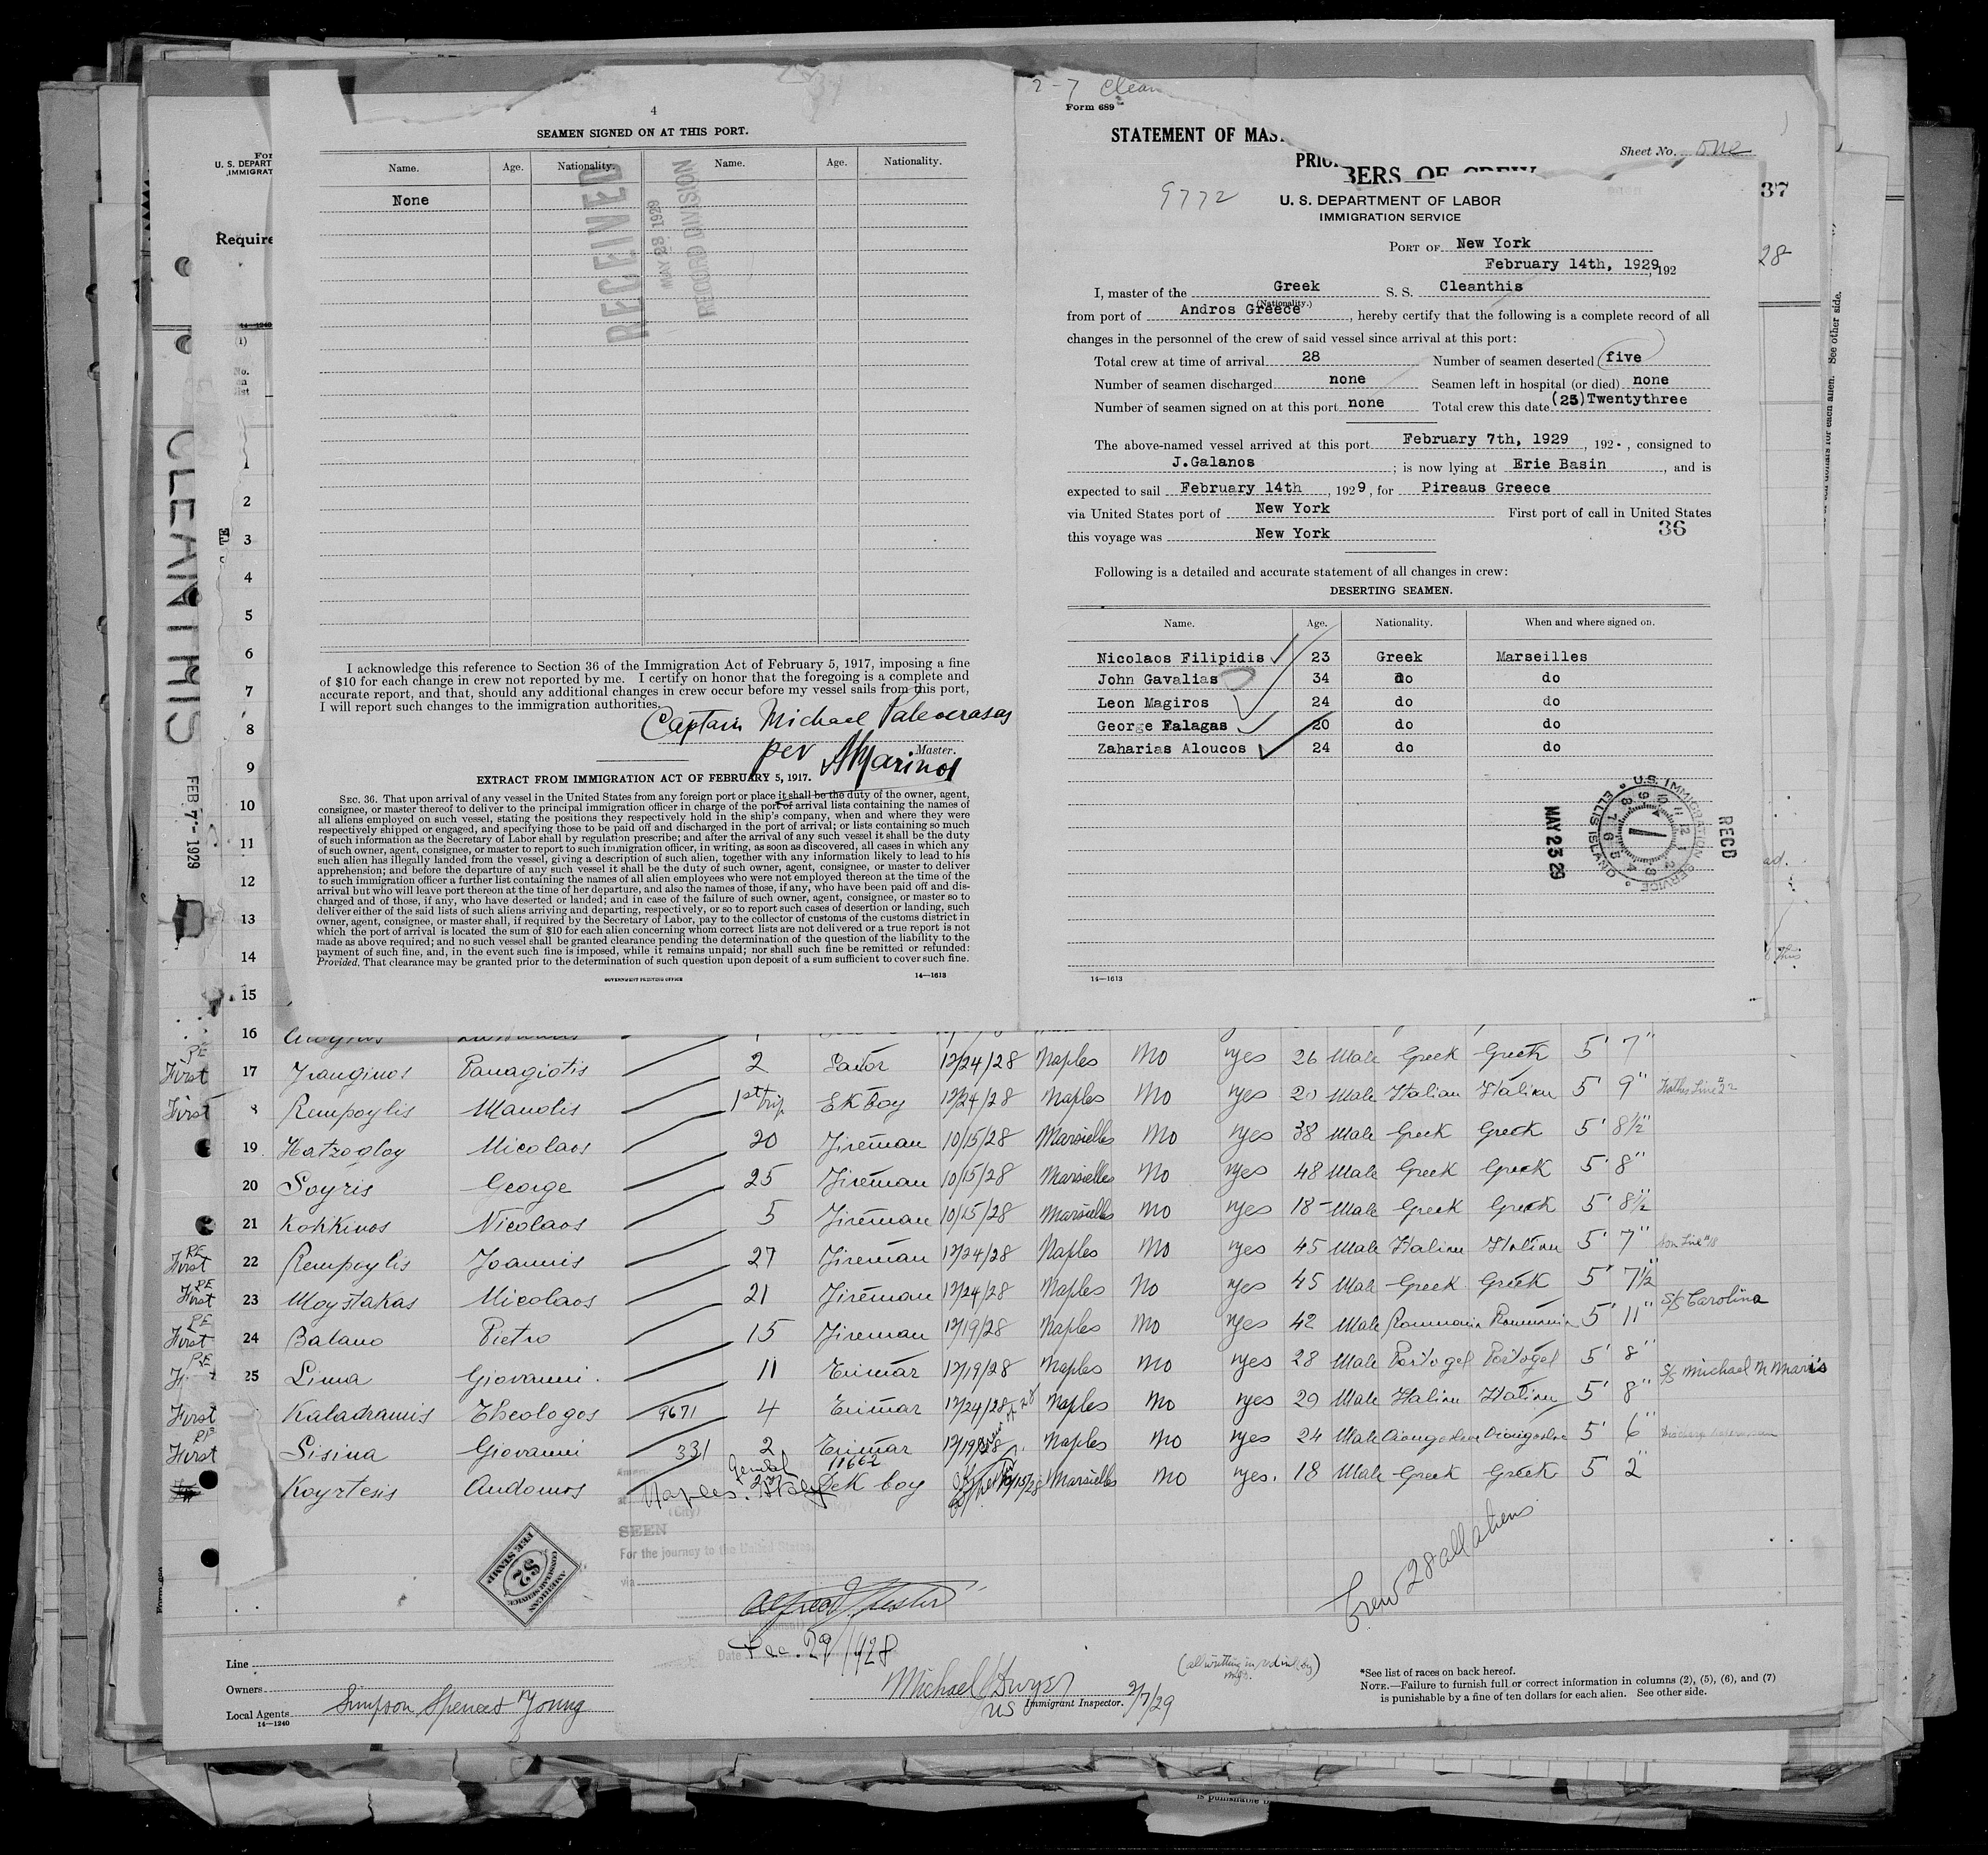 4
SEAMEN SIGNED ON AT THIS PORT.
Name. Age. Nationality. Name. Age. Nationality.
None
RECEIVED
MAY 23 1929
RECORD DIVISION
I acknowledge this reference to Section 36 of the Immigration Act of February 5, 1917, imposing a fine
of $10 for each change in crew not reported by me. I certify on honor that the foregoing is a complete and
accurate report, and that, should any additional changes in crew occur before my vessel sails from this port,
I will report such changes to the immigration authorities.
Captain Michael Paleocrasas
per AMarinos
Master.
EXTRACT FROM IMMIGRATION ACT OF FEBRUARY 5, 1917.
SEC. 36. That upon arrival of any vessel in the United States from any foreign port or place it shall be the duty of the owner, agent,
consignee, or master thereof to deliver to the principal immigration officer in charge of the port of arrival lists containing the names of
all aliens employed on such vessel, stating the positions they respectively hold in the ship's company, when and where they were
respectively shipped or engaged, and specifying those to be paid off and discharged in the port of arrival; or lists containing so much
of such information as the Secretary of Labor shall by regulation prescribe; and after the arrival of any such vessel it shall be the duty
of such owner, agent, consignee, or master to report to such immigration officer, in writing, as soon as discovered, all cases in which any
such alien has illegally landed from the vessel, giving a description of such alien, together with any information likely to lead to his
apprehension; and before the departure of any such vessel it shall be the duty of such owner, agent, consignee, or master to deliver
to such immigration officer a further list containing the names of all alien employees who were not employed thereon at the time of the
arrival but who will leave port thereon at the time of her departure, and also the names of those, if any, who have been paid off and dis-
charged and of those, if any, who have deserted or landed; and in case of the failure of such owner, agent, consignee, or master so to
deliver either of the said lists of such aliens arriving and departing, respectively, or so to report such cases of desertion or landing, such
owner, agent, consignee, or master shall, if required by the Secretary of Labor, pay to the collector of customs of the customs district in
which the port of arrival is located the sum of $10 for each alien concerning whom correct lists are not delivered or a true report is not
made as above required; and no such vessel shall be granted clearance pending the determination of the question of the liability to the
payment of such fine, and, in the event such fine is imposed, while it remains unpaid; nor shall such fine be remitted or refunded:
Provided, That clearance may be granted prior to the determination of such question upon deposit of a sum sufficient to cover such fine.
GOVERNMENT PRINTING OFFICE
14—1613
2-7 Clean
Form 689
STATEMENT OF MAS
PRIO
BERS OF CREW
Sheet No. one
9772
U. S. DEPARTMENT OF LABOR
IMMIGRATION SERVICE
PORT OF New York
February 14th, 1929, 192
I, master of the Greek S. S. Cleanthis
(Nationality.)
from port of Andros Greece, hereby certify that the following is a complete record of all
changes in the personnel of the crew of said vessel since arrival at this port:
Total crew at time of arrival 28 Number of seamen deserted five
Number of seamen discharged none Seamen left in hospital (or died) none
Number of seamen signed on at this port none Total crew this date (23) Twentythree
The above-named vessel arrived at this port February 7th, 1929, 192 . , consigned to
J.Galanos ; is now lying at Erie Basin, and is
expected to sail February 14th, 1929, for Pireaus Greece
via United States port of New York First port of call in United States
36
this voyage was New York
Following is a detailed and accurate statement of all changes in crew:
DESERTING SEAMEN.
Name. Age. Nationality. When and where signed on.
Nicolaos Filipidis 23 Greek Marseilles
John Gavalias 34 do do
Leon Magiros 24 do do
George Falagas 20 do do
Zaharias Aloucos 24 do do
U.S. IMMIGRATION SERVICE ELLIS ISLAND
MAY 23 29
RECD
14—1613
37
28
See other side.
For
U. S. DEPART
IMMIGRAT
Require
14—1240
CLEANTHIS
FEB 7 - 1929
1
2
3
4
5
6
7
8
9
10
11
12
13
14
15
16
First 17 Panagiotis 2 Sailor 12/24/28 Naples No yes 26 Male Greek Greek 5' 7"
First 8 Rempoylis Manolis 1st trip EK boy 12/24/28 Naples No yes 20 Male Italian Italian 5' 9"
19 Hatzogloy Nicolaos 20 Fireman 10/15/28 Marsielles No yes 38 Male Greek Greek 5' 8½"
20 Soyris George 25 Fireman 10/15/28 Marsielles No yes 48 Male Greek Greek 5' 8"
21 Kokkinos Nicolaos 5 Fireman 10/15/28 Marsielles No yes 18 Male Greek Greek 5' 8½"
First 22 Rempoylis Joannis 27 Fireman 12/24/28 Naples No yes 45 Male Italian Italian 5' 7"
First 23 Moystakas Nicolaos 21 Fireman 12/24/28 Naples No yes 45 Male Greek Greek 5' 7½"
First 24 Balano Pietro 15 Fireman 12/19/28 Naples No yes 42 Male Roumania Roumania 5' 11" S/S Carolina
25 Lima Giovanni 11 Trimar 12/19/28 Naples No yes 28 Male Portogel Portogel 5' 8" S/S Michael N Maris
First Kaladramis Theologos 9671 4 Trimar 12/24/28 Naples No yes 29 Male Italian Italian 5' 8"
First Sisina Giovanni 331 2 Trimar 12/19/28 Naples No yes 24 Male 5' 6"
Koyrtesis Andomos Dek boy 11662 10/15/28 Marsielles No yes. 18 Male Greek Greek 5 2"
Naples. Italy
(City)
SEEN
For the journey to the United States
via
AMERICAN CONSULAR SERVICE $2 FEE STAMP
Date Dec. 29/1928
Crew 28 all aliens
Line
Owners
Local Agents Simpson Spence & Young
14—1240
Michael Dwyer
US Immigrant Inspector. 2/7/29
*See list of races on back hereof.
NOTE.—Failure to furnish full or correct information in columns (2), (5), (6), and (7)
is punishable by a fine of ten dollars for each alien. See other side.